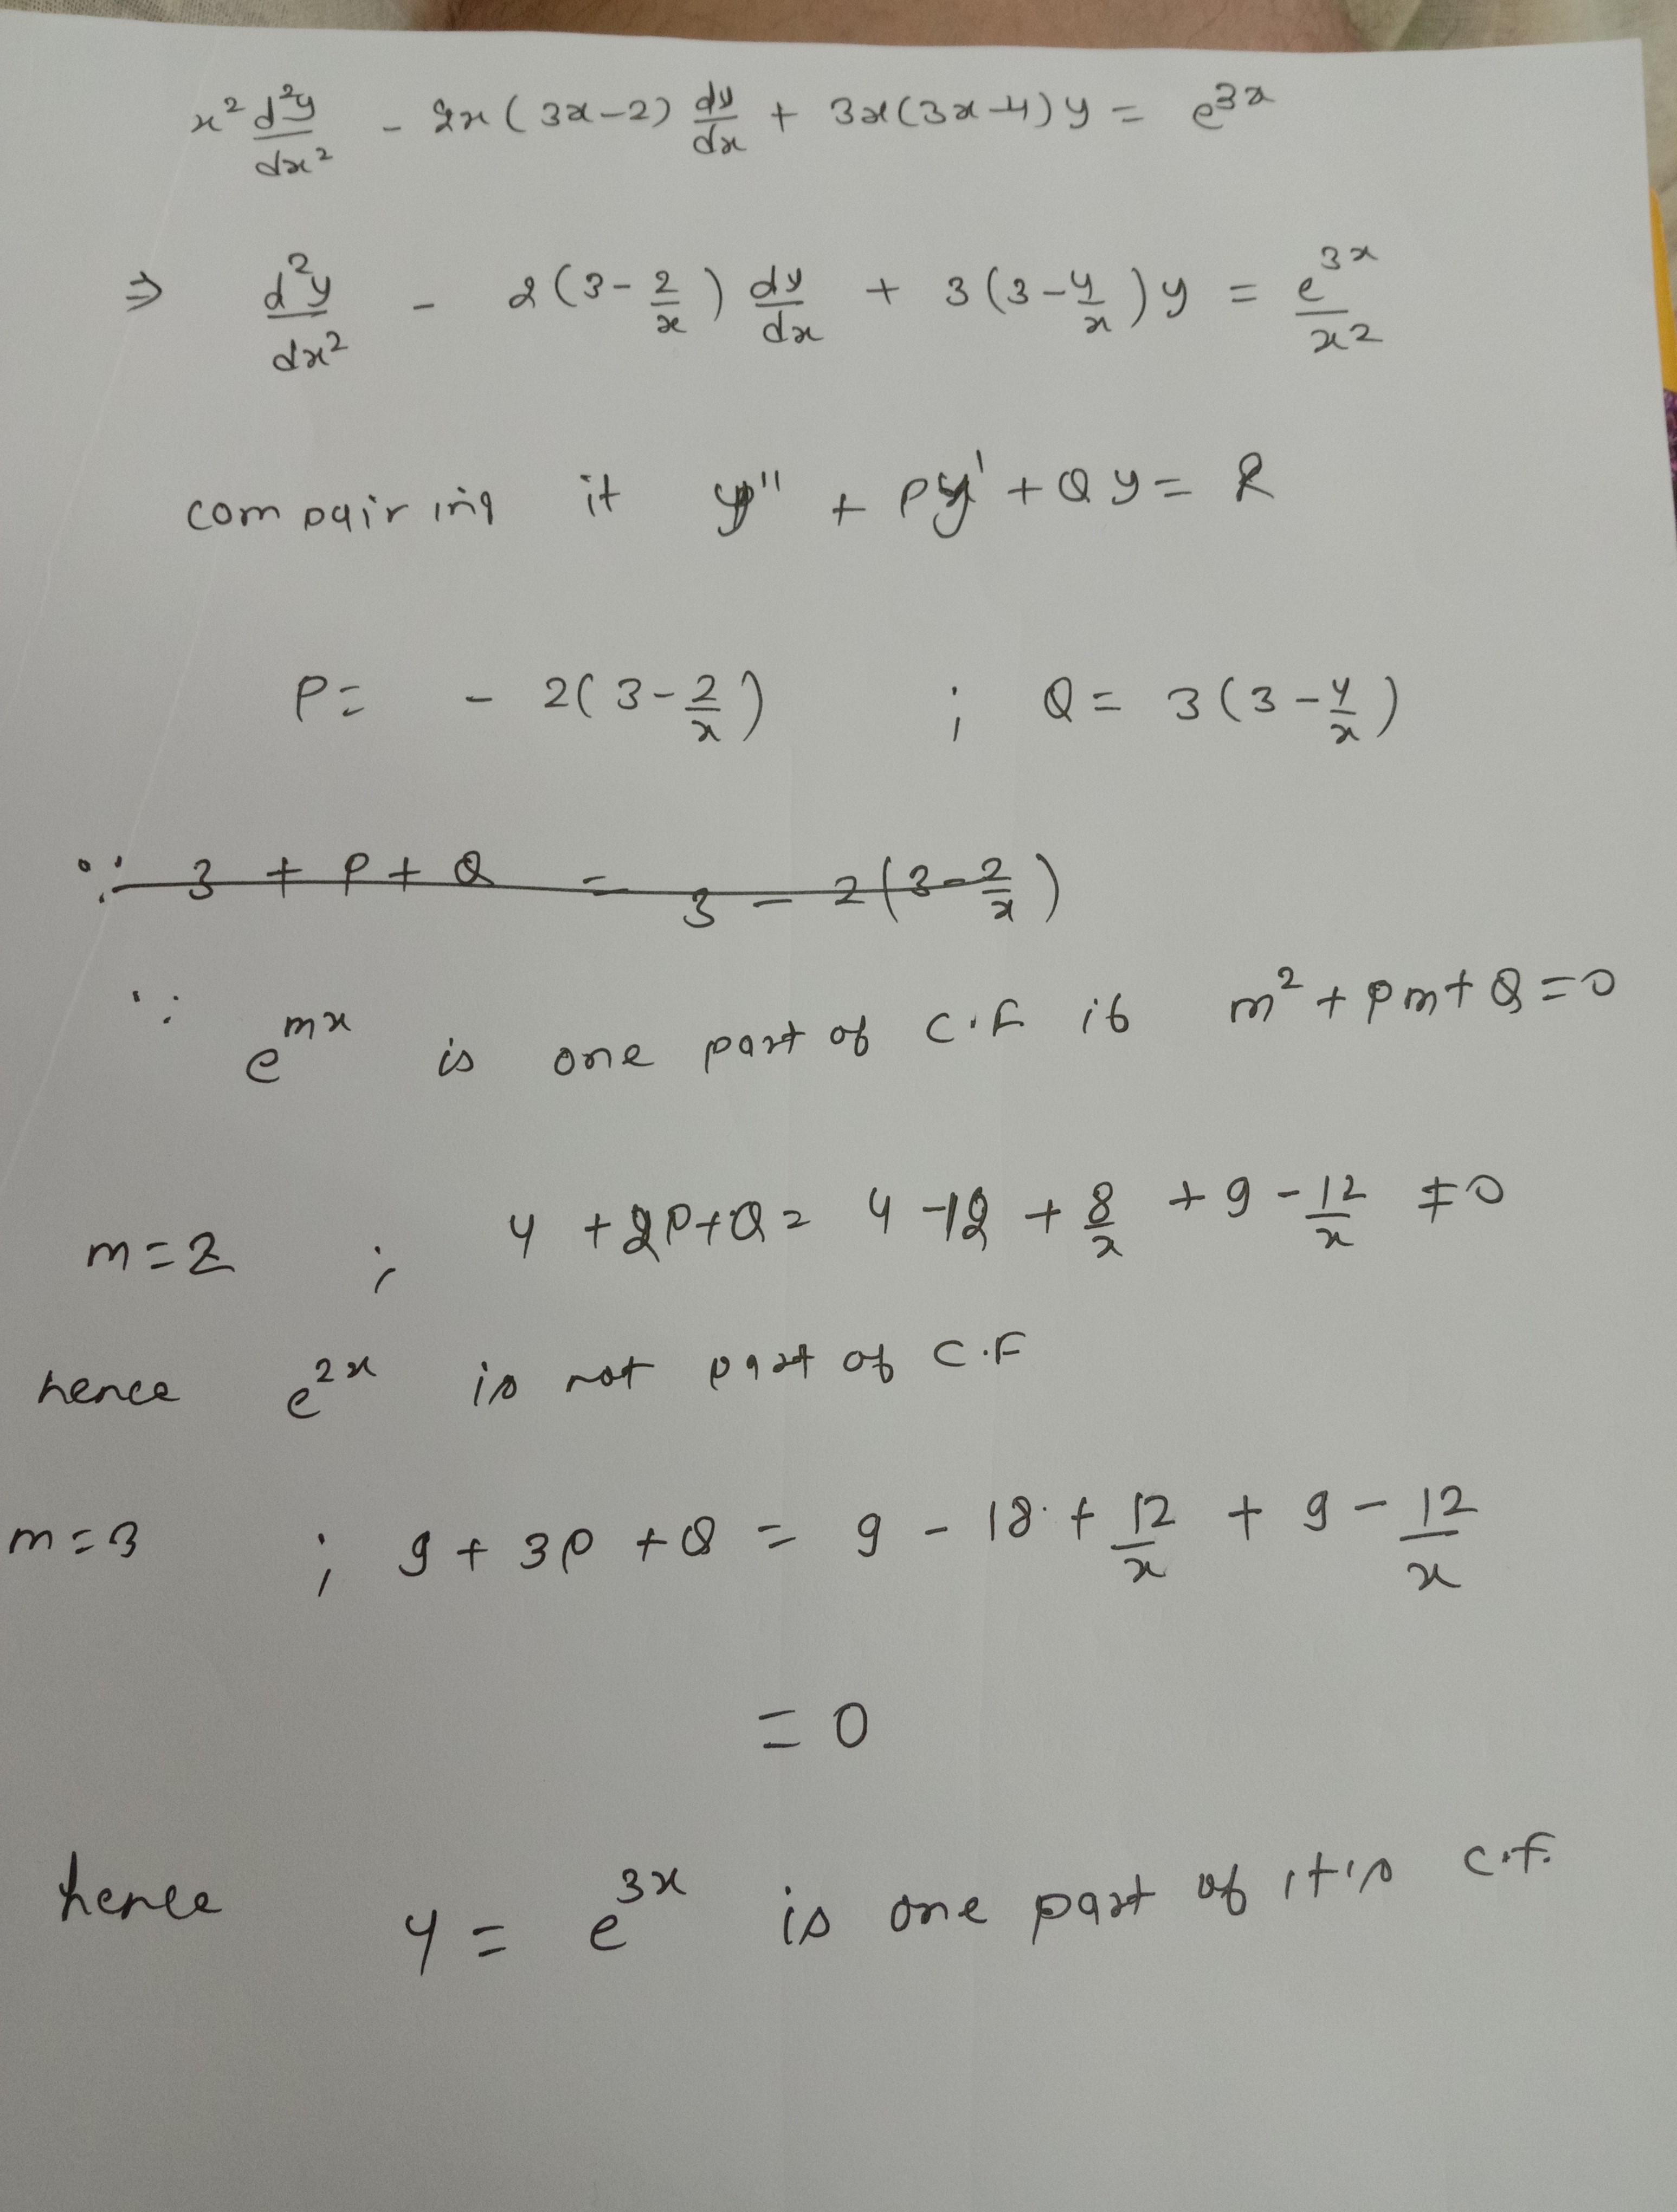 x² d²y/dx² - 2x(3x-2) dy/dx + 3x(3x-4)y = e^3x
⇒ d²y/dx² - 2(3-2/x) dy/dx + 3(3-4/x)y = e^3x/x²
compairing it y'' + Py' + Qy = R
P = - 2(3-2/x) ; Q = 3(3-4/x)
∵ 3 + P + Q = 3 - 2(3-2/x)
∵ e^mx is one part of C.F if m² + Pm + Q = 0
m=2 ; 4 + 2P + Q = 4 - 12 + 8/x + 9 - 12/x ≠ 0
hence e^2x is not part of C.F
m=3 ; 9 + 3P + Q = 9 - 18 + 12/x + 9 - 12/x
= 0
hence y = e^3x is one part of it's C.F.